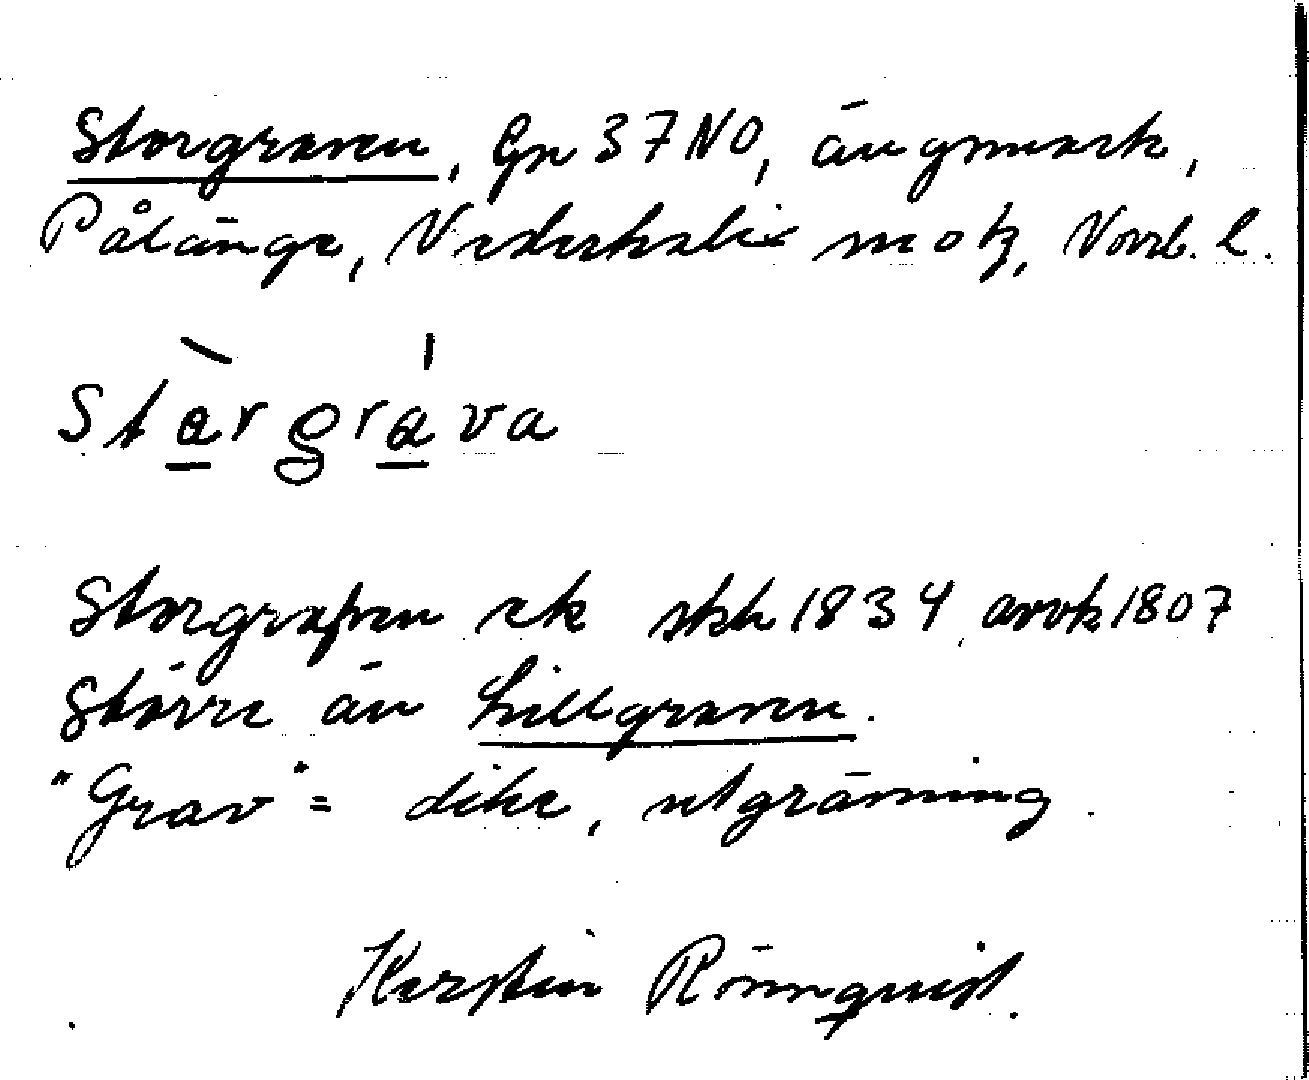 Storgraven, Gp 37NO, ängsmark,
Pålänge, Nederkalix sn o tg, Norrb. l.
Storgrava
Storgrafven ek skh 1834 avvk 1807
Större än Lillgraven.
"Grav" = dike, utgrävning.
Kerstin Rönnquist.